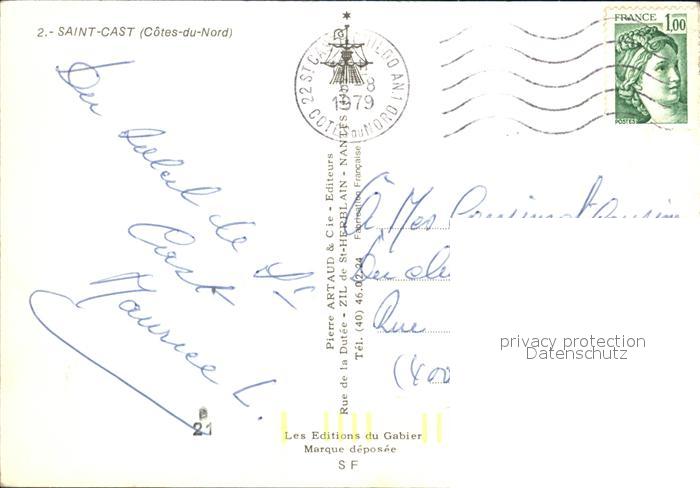 2.- SAINT-CAST (Côtes-du-Nord)
Du soleil de St
Cast
Maurice L.
21
22 ST CAST
1979
COTES DU NORD
FRANCE 1,00
POSTES
Pierre ARTAUD & Cie - Editeurs
Rue de la Dutée - ZIL de St-HERBLAIN - NANTES
Tél. (40) 46.0
Fabrication Française
À Mes Cousins
Rue
privacy protection
Datenschutz
Les Editions du Gabier
Marque déposée
S F